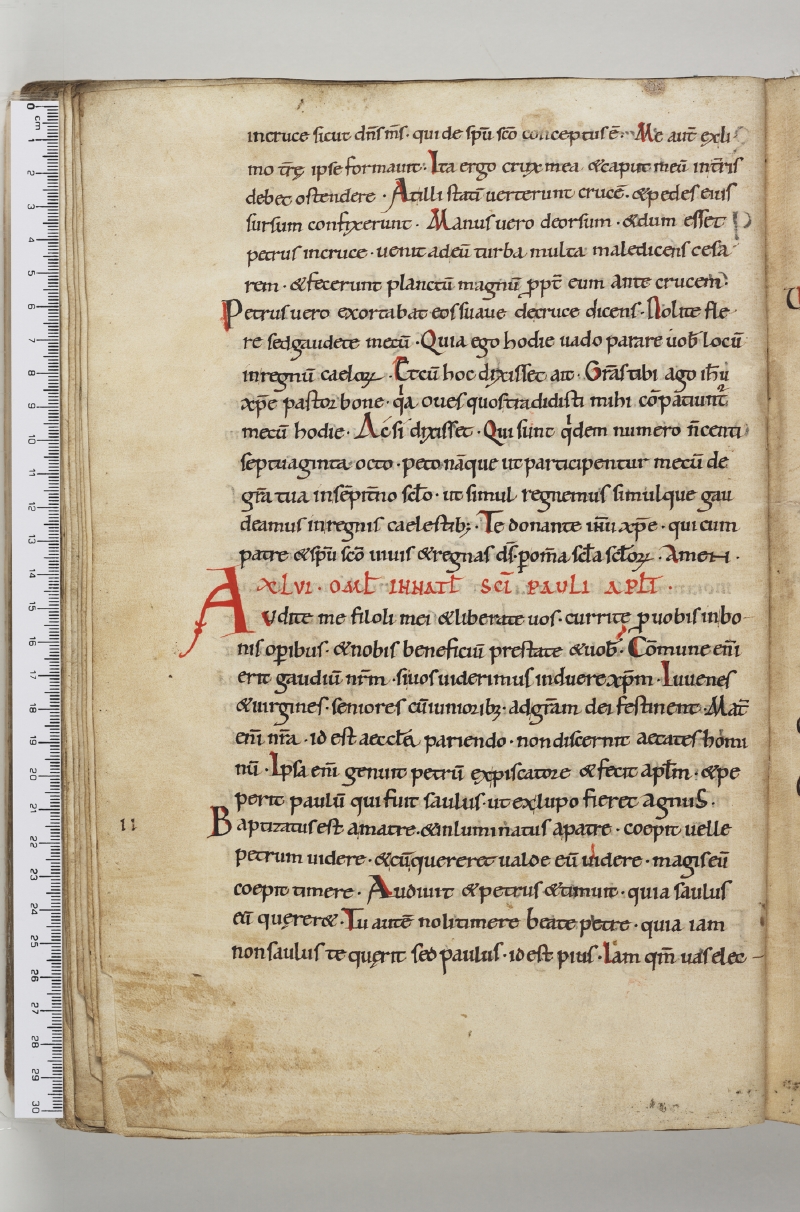 incruce sicut dn̄s m̄s· qui de sp̄u sc̄o conceptus ē· Me aut̄ exli
mo t̄rę ipse formauit· Ita ergo crux mea &caput meū int̄ris
debet ostendere · Atilli statī uerterunt crucē· &pedes eius
sursum confixerunt · Manus uero deorsum · &dum esset
petrus incruce · uenit adeū turba multa maledicens cesa
rem · &fecerunt planctū magnū ꝓpt̄ eum ante crucem·
Petrus uero exortabat eos suaue decruce dicens· Nolite fle
re sedgaudete mecū · Quia ego hodie uado parare uob̄ locū
inregnū caeloꝝ · Etcū hoc dixisset ait · Gr̄as tibi ago ih̄u
xp̄e pastor bone · q̄a oues quas tradidisti mihi cōpatiunt᷑
mecū hodie · Ac si dixisset · Qui sunt q̄dem numero n̄centi
septuaginta octo · peto nāque ut participentur mecū de
gr̄a tua insēpit̄no sc̄lo · ut simul regnemus simulque gau
deamus inregnis caelestib; · Te donante ih̄u xp̄e · qui cum
patre &sp̄u sc̄o uiuis &regnas d̄s· ꝑ om̄a sc̄la sc̄loꝝ · Amen ·
XLVI · OML̄ INNATL̄ SC̄I PAULI APL̄I ·
Audite me filoli mei &liberate uos· currite ꝓ uobis inbo
nis oꝑibus· &nobis beneficiū prestate &uob̄· Cōmune em̄
erit gaudiū nr̄m · si uos uiderimus induere xp̄m · Iuuenes
&uirgines· seniores cū iunioribꝫ· adgr̄am dei festinent· Mat̄
em̄ nr̄a · id est aeccl̄ęa pariendo · non discernit aetates homi
nū · Ipsa em̄ genuit petrū expiscatore &fecit apl̄m · &pe
perit paulū qui fuit saulus· ut exlupo fieret agnus·
11
Baptizatus est amatre· &inluminatus apatre · coepit uelle
petrum uidere · &cū quereret ualde eū uidere · magis eū
coepit timere · Audiuit &petrus &timuit · quia saulus
eū quęrer&· Tu autē noli timere beate petre · quia iam
non saulus te quęrit sed paulus · id est pius · Iam qm̄ uas elec